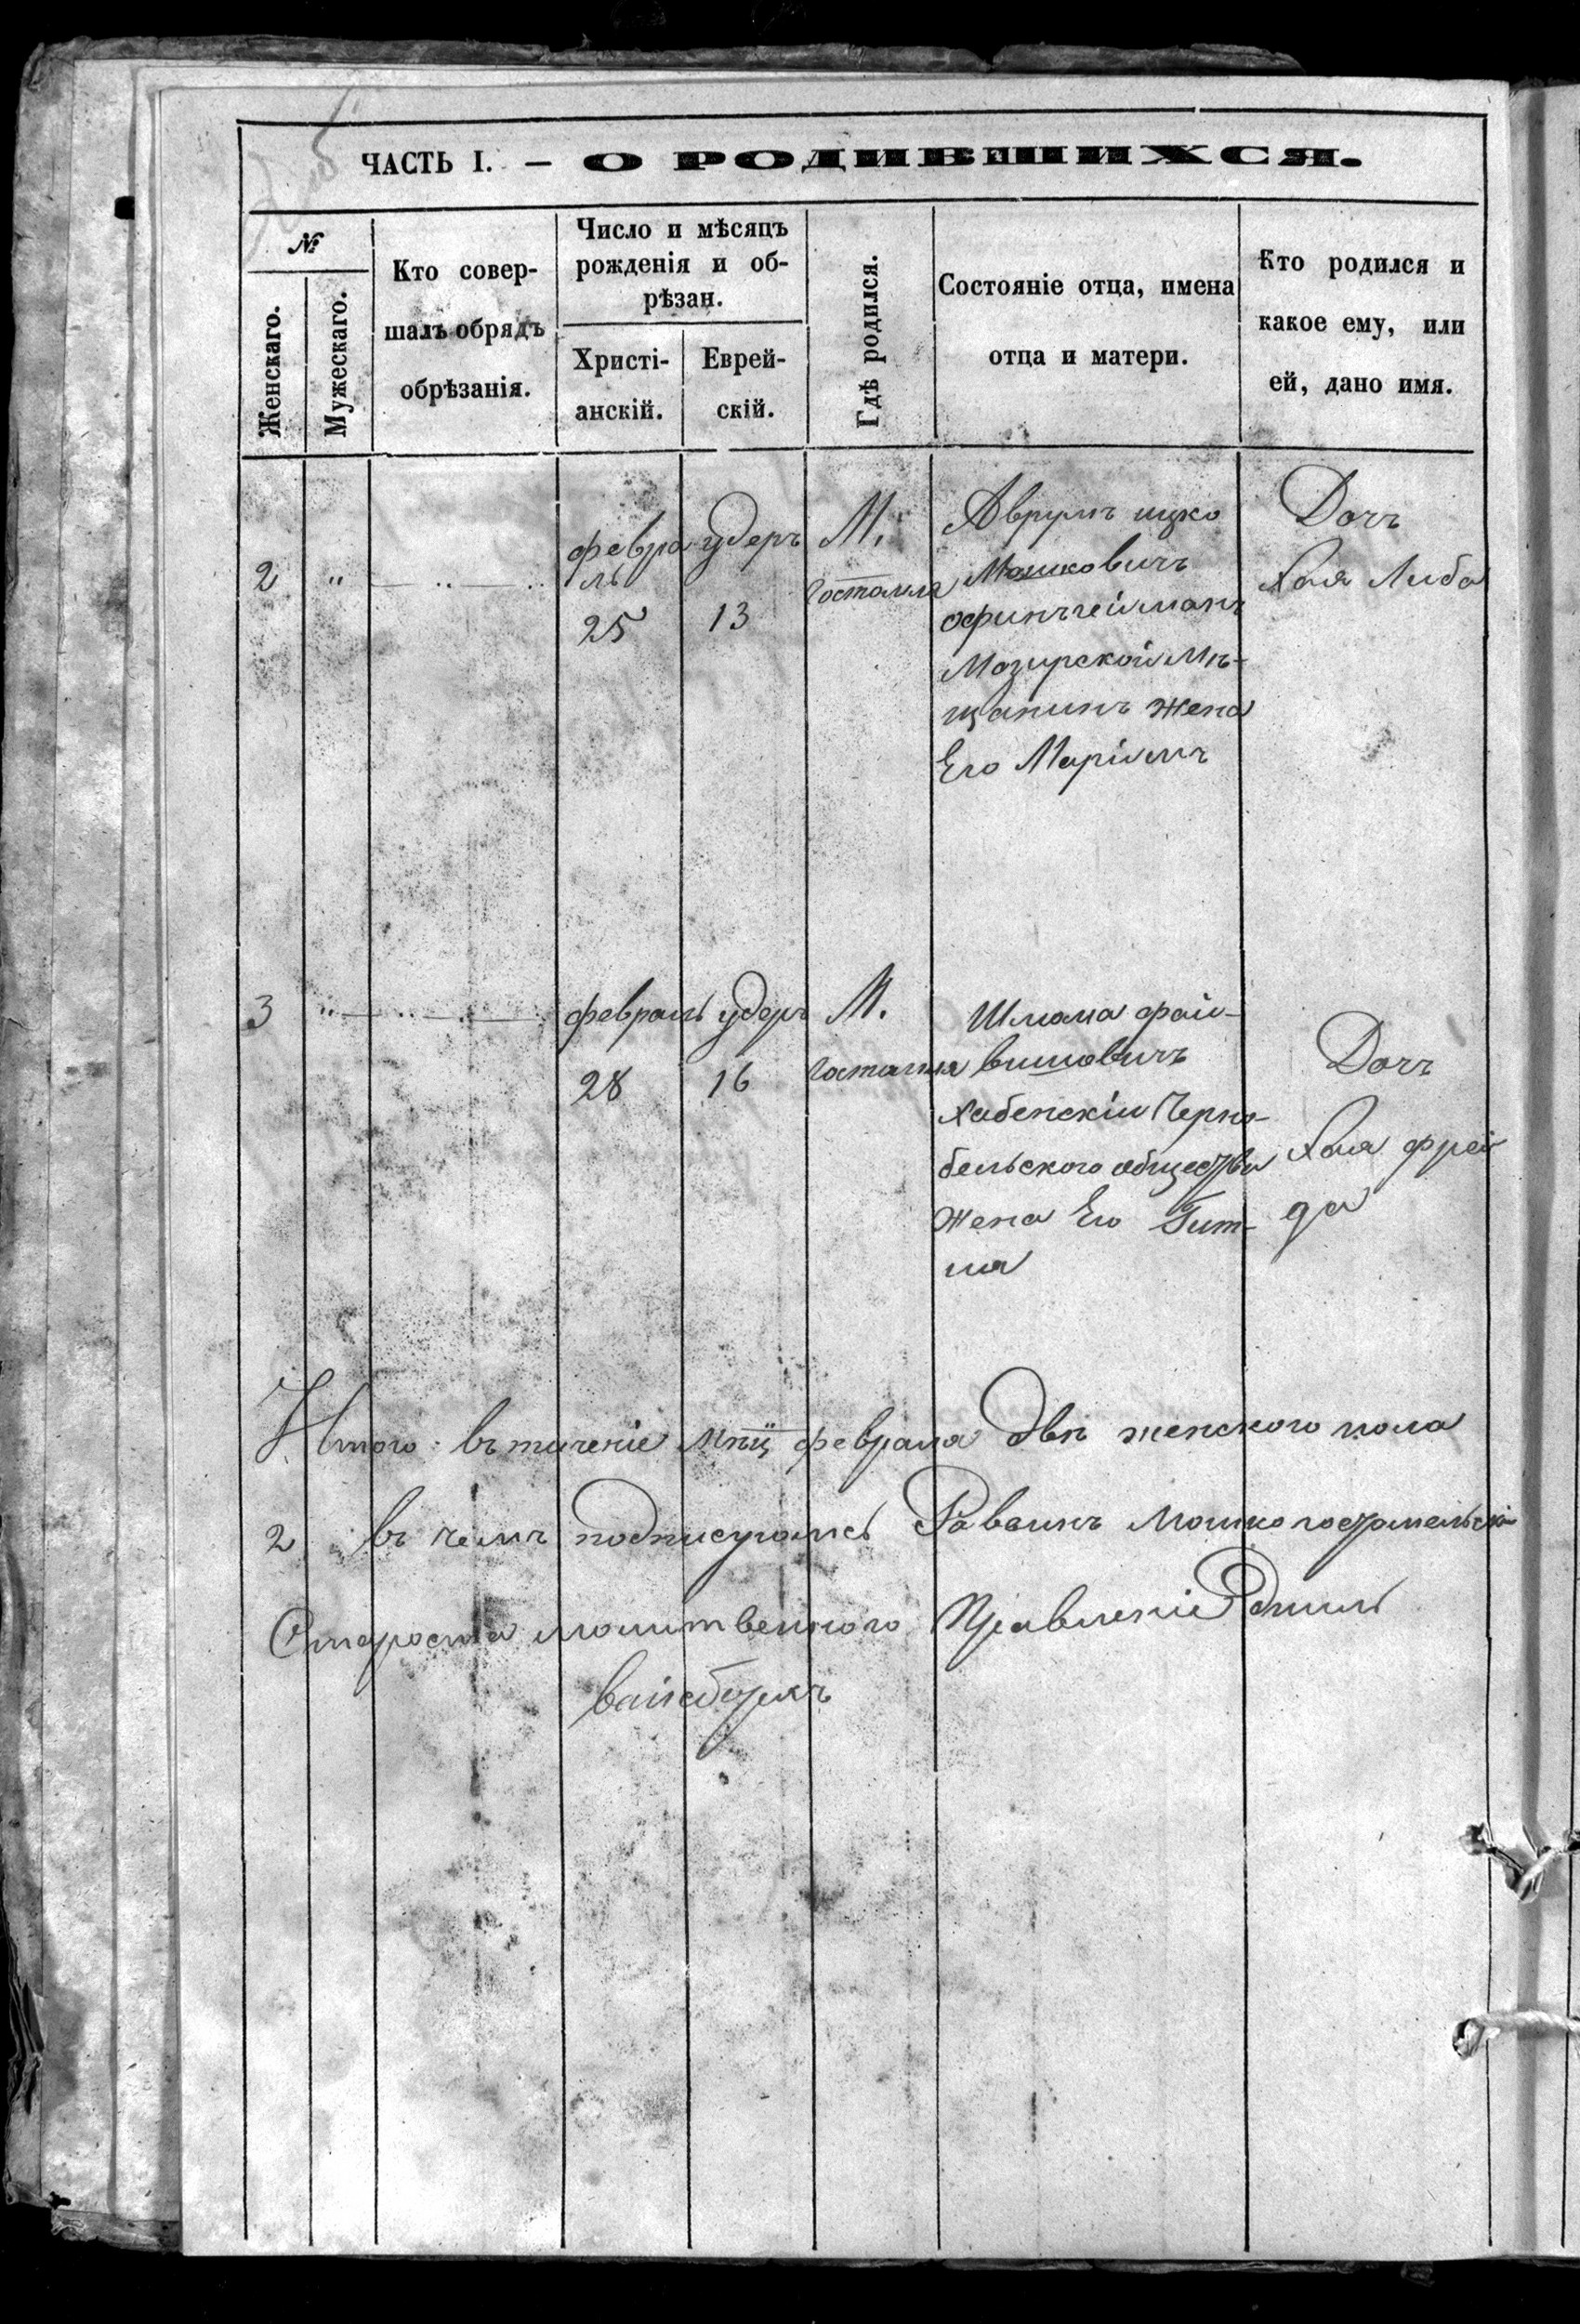 ЧАСТЬ I. — О РОДИВШИХСЯ.
№
Женскаго.
Мужескаго.
Кто совер-
шалъ обрядъ
обрѣзанія.
Число и мѣсяцъ
рожденія и об-
рѣзан.
Христі-
анскій.
Еврей-
скій.
Гдѣ родился.
Состояніе отца, имена
отца и матери.
Кто родился и
какое ему, или
ей, дано имя.
2 " — " —
февра
ль
25
удеръ
13
М.
Гостомля
Аврумъ ицко
Мошковичъ
Мозирской Мѣ-
щанинъ жена
Его Маріямъ
Дочъ
Хая Либа
3 " — " —
февраль
28
удеръ
16
М.
Гостомля
Шлома фай-
вишовичъ
Хабенскій Черно-
бельского общества
жена Его Гит-
ля
Дочъ
Хая фрей
да
Итого въ тиченіе Мѣц февраля двѣ женского пола
2 въ чемъ подписуемся Равинъ Мошко
Староста молитвенного Правленіе